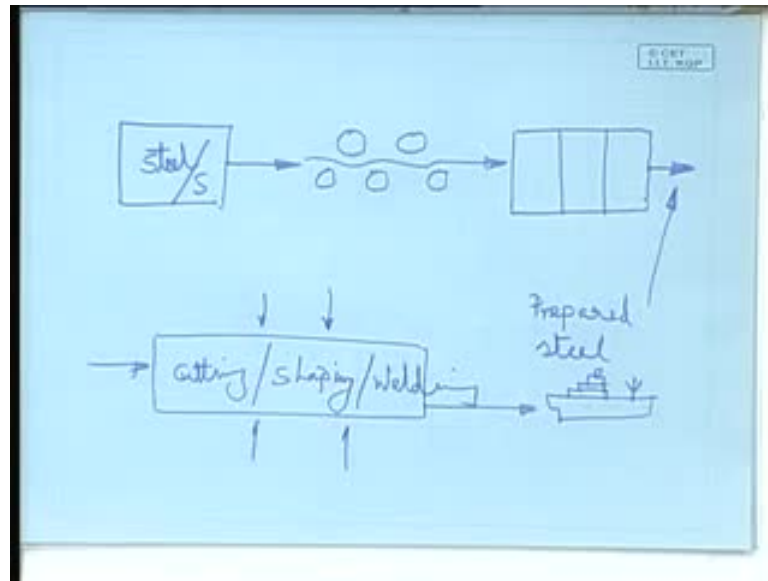 © CET
I.I.T. KGP
Steel/S
Prepared
steel
Cutting/Shaping/Welding